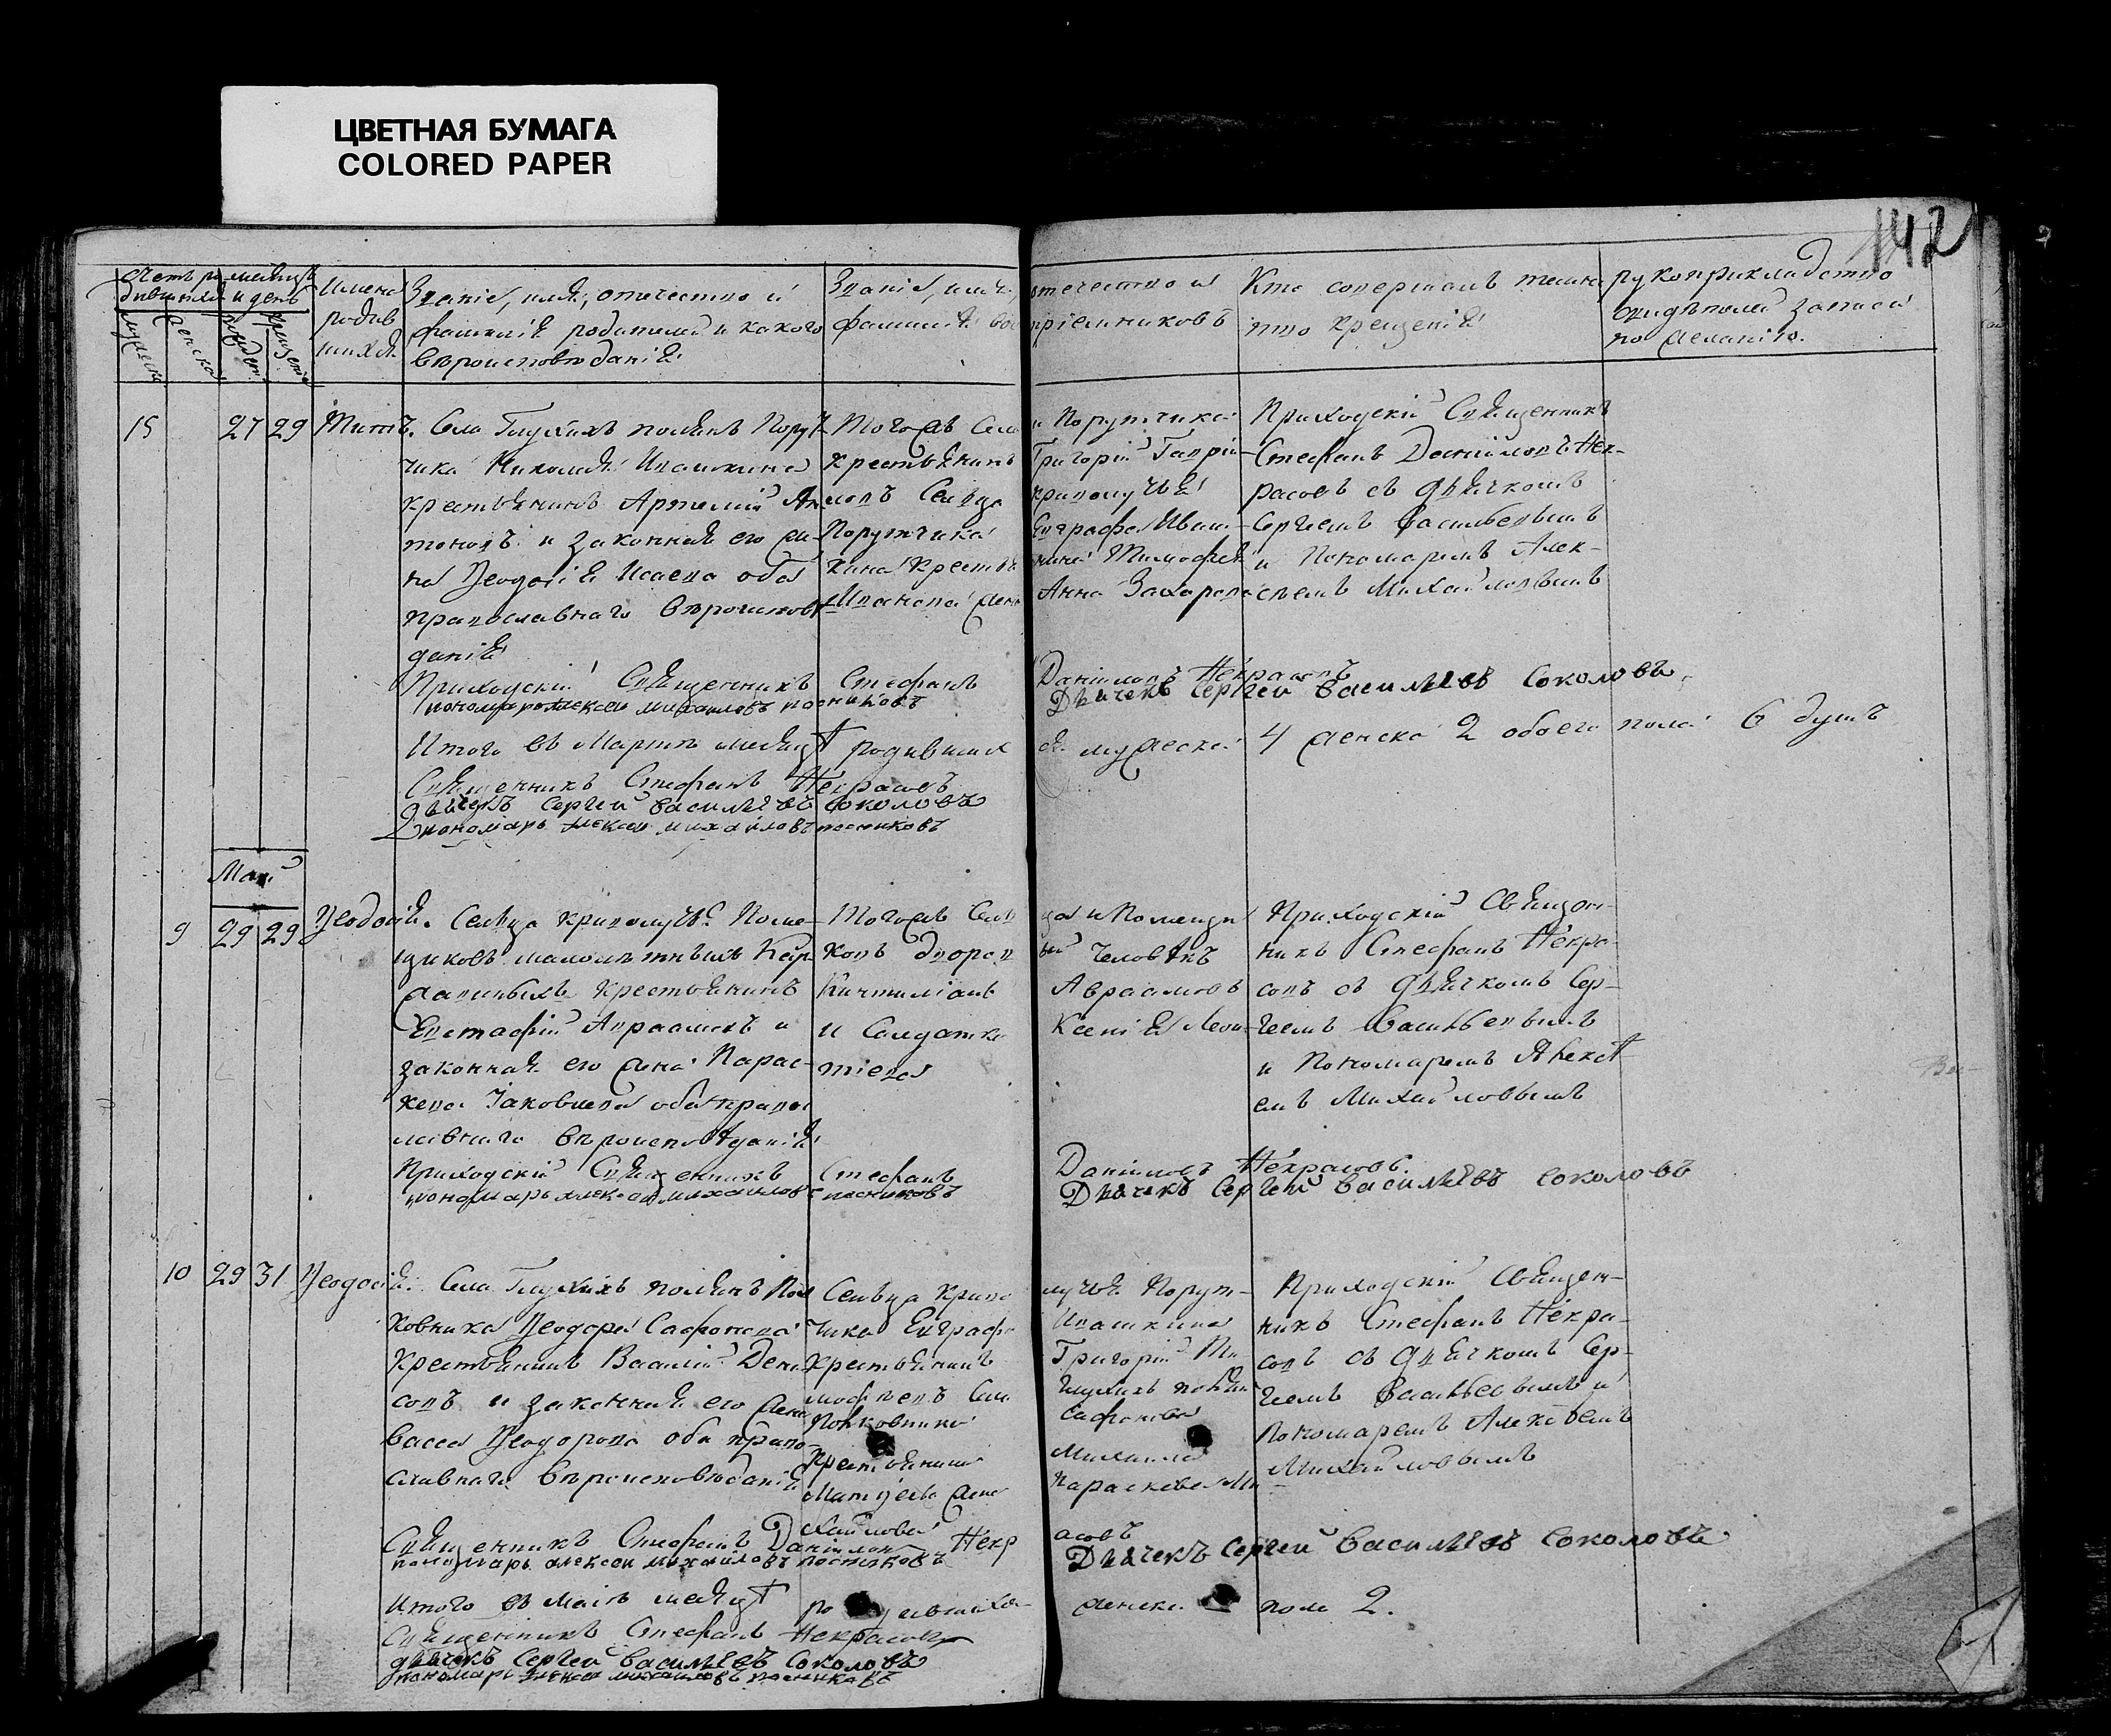 ЦВЕТНАЯ БУМАГА
COLORED PAPER
142
Счетъ ро дившихся
месяцъ и день
мужеска
женска
рождения
крещения
Имена
родив
шихся
Званіе, имя, отечество и
фамилія родителей и какого
вѣроисповѣданія
Званіе, имя,
фамилія вос
отечество и
пріемниковъ
Кто совершалъ таин
ство крещенія
рукоприкладство
свидѣтелей записи
по желанію.
15
27
29
Титъ.
Села Глухихъ полянъ Поруt
чика Николая Ивашкина
крестьянинъ Артемій Ан
тоновъ и законная его же
на Ѳеодосія Исаева оба
православнаго вѣроисповѣ
данія
Тогожъ села
крестьянинъ
ловъ Сельца
Порутчика
кина Крестья
Иванова жен
и Порутчика
Григорій Гаврі
криволучья
Евграфа Иваш
нина Тимофея
Анна Захарова
Приходскій Священникъ
Стефанъ Даніиловъ Нек-
расовъ съ дьячкомъ
Сергіемъ Васильевымъ
и Пономаремъ Алек-
сѣемъ Михайловымъ
Приходскій Священникъ Стефанъ Даніиловъ Некрасовъ
пономарь Алексей михаиловъ посниковъ Дьячекъ Сергей Васильевъ Соколовъ
Итого въ Мартѣ месяцѣ родившихся мужеска 4 женска 2 обоего пола 6 душъ
Священникъ Стефанъ Некрасовъ
Дьячекъ Сергей Васильевъ Соколовъ
пономарь Алексеи михаиловъ посниковъ
Май
9
29
29
Ѳеодосія.
Сельца криволучья Поме-
щиковъ малолѣтныхъ
крестьянинъ
Евстафій Авраамовъ и
законная его жена Парас-
кева Іаковлева оба правос
лавнаго вѣроисповѣданія
Тогожъ Сель
ковъ дворов
и Солдатка
тіева
ца и Помещи
ый человѣкъ
Авраамовъ
Ксенія Леон-
Приходскій Священ-
никъ Стефанъ Некра-
совъ съ дьячкомъ Сер-
гіемъ Васильевымъ
и Пономаремъ Алексѣ
емъ Михайловымъ
Приходскій Священникъ Стефанъ Даніиловъ Некрасовъ.
пономарь алексеи михаиловъ посниковъ Дьячекъ Сергей Васильевъ Соколовъ
10
29
31
Ѳеодосія.
Села Глухихъ полянъ Пол
ковника Ѳеодора Сафонова
Крестьянинъ Василій Дени
совъ и законная его жена
Васса Ѳеодорова оба право-
славнаго вѣроисповѣданія
Сельца Криво
чика Евграфа
Крестьянинъ
мофѣевъ Села
Полковника
Крестьянина
Матѳеева жена
хайлова
лучья Порут-
Ивашкина
Григорій Ти
Глухихъ полян
Сафонова
Михаила
Параскева Ми
Приходскій Священ-
никъ Стефанъ Некра-
совъ съ дьячкомъ Сер-
гіемъ Васильевымъ и
Пономаремъ Алексѣемъ
Михайловымъ
Священникъ Стефанъ Даніиловъ Некрасовъ
пономарь алексеи михаиловъ посниковъ Дьячекъ Сергей Васильевъ Соколовъ
Итого въ Маіѣ месяцѣ родившихся женска пола 2.
Священникъ Стефанъ Некрасовъ
дьячекъ Сергей Васильевъ Соколовъ
пономарь алексеи михаиловъ посниковъ